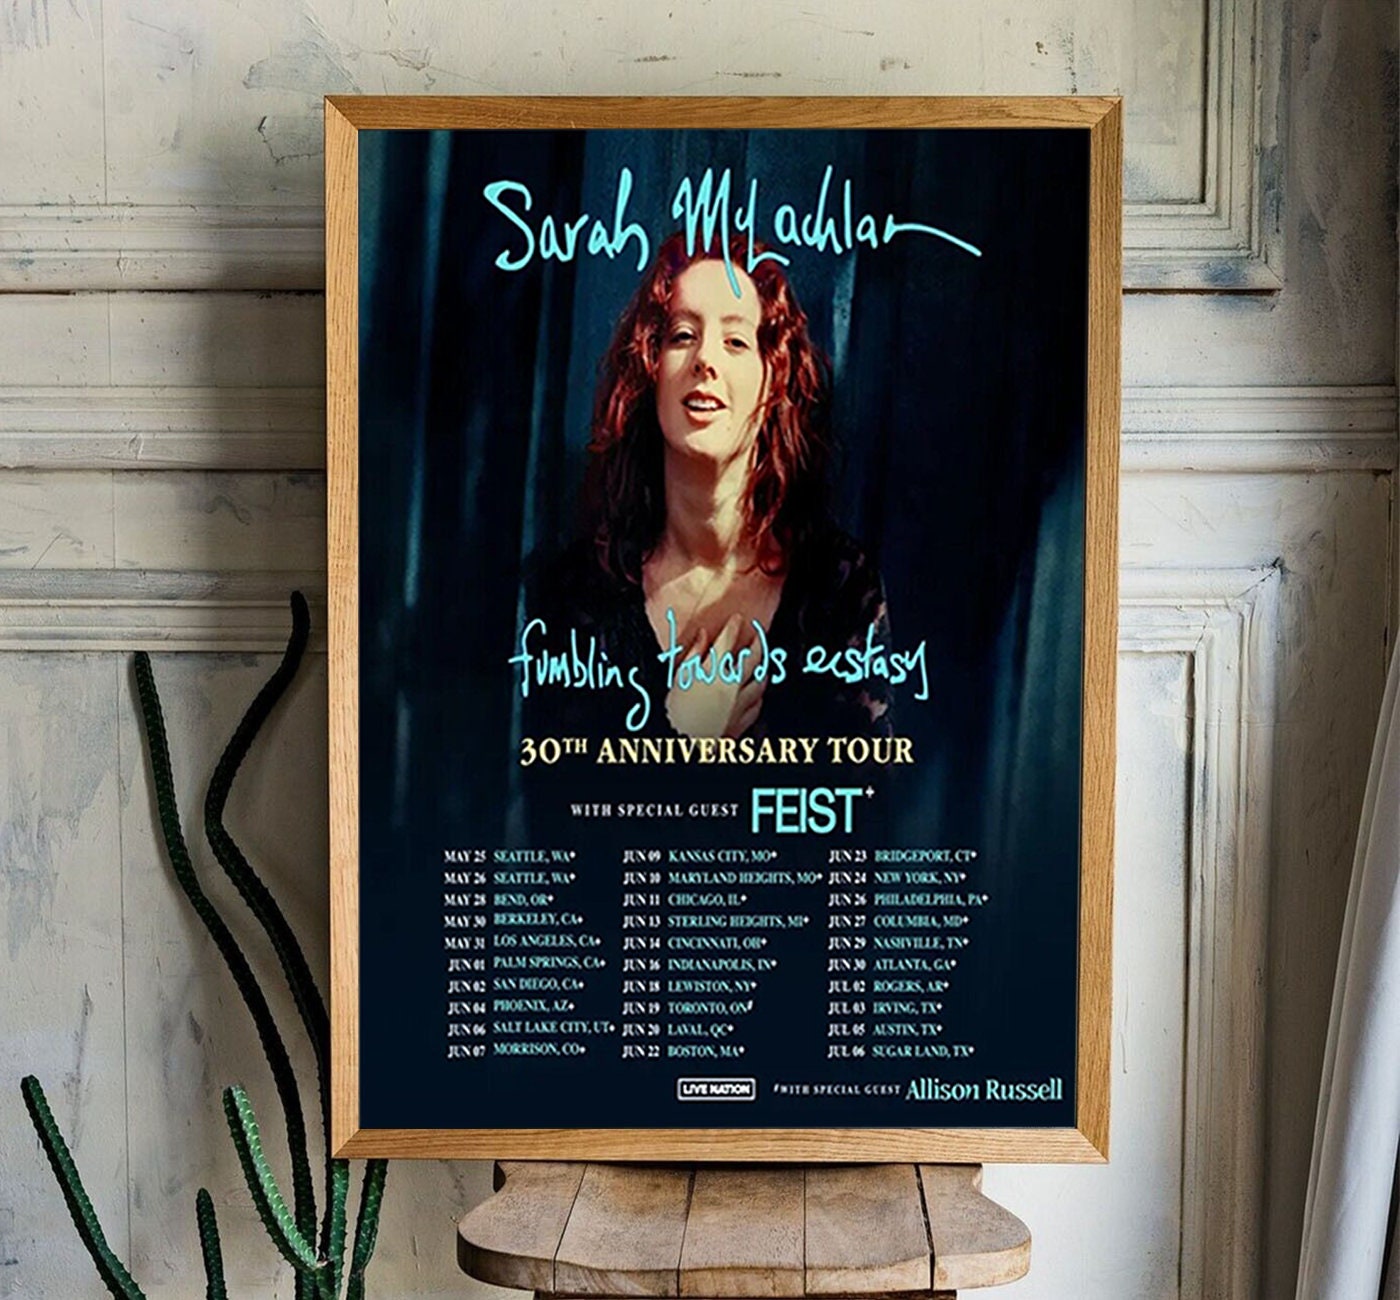 Sarah McLachlan
fumbling towards ecstasy
30TH ANNIVERSARY TOUR
WITH SPECIAL GUEST FEIST+
MAY 25 SEATTLE, WA+
MAY 26 SEATTLE, WA+
MAY 28 BEND, OR+
MAY 30 BERKELEY, CA+
MAY 31 LOS ANGELES, CA+
JUN 01 PALM SPRINGS, CA+
JUN 02 SAN DIEGO, CA+
JUN 04 PHOENIX, AZ+
JUN 06 SALT LAKE CITY, UT+
JUN 07 MORRISON, CO+
JUN 09 KANSAS CITY, MO+
JUN 10 MARYLAND HEIGHTS, MO+
JUN 11 CHICAGO, IL+
JUN 13 STERLING HEIGHTS, MI+
JUN 14 CINCINNATI, OH+
JUN 16 INDIANAPOLIS, IN+
JUN 18 LEWISTON, NY+
JUN 19 TORONTO, ON#
JUN 20 LAVAL, QC+
JUN 22 BOSTON, MA+
JUN 23 BRIDGEPORT, CT+
JUN 24 NEW YORK, NY+
JUN 26 PHILADELPHIA, PA+
JUN 27 COLUMBIA, MD+
JUN 29 NASHVILLE, TN+
JUN 30 ATLANTA, GA+
JUL 02 ROGERS, AR+
JUL 03 IRVING, TX+
JUL 05 AUSTIN, TX+
JUL 06 SUGAR LAND, TX+
LIVE NATION
#WITH SPECIAL GUEST Allison Russell